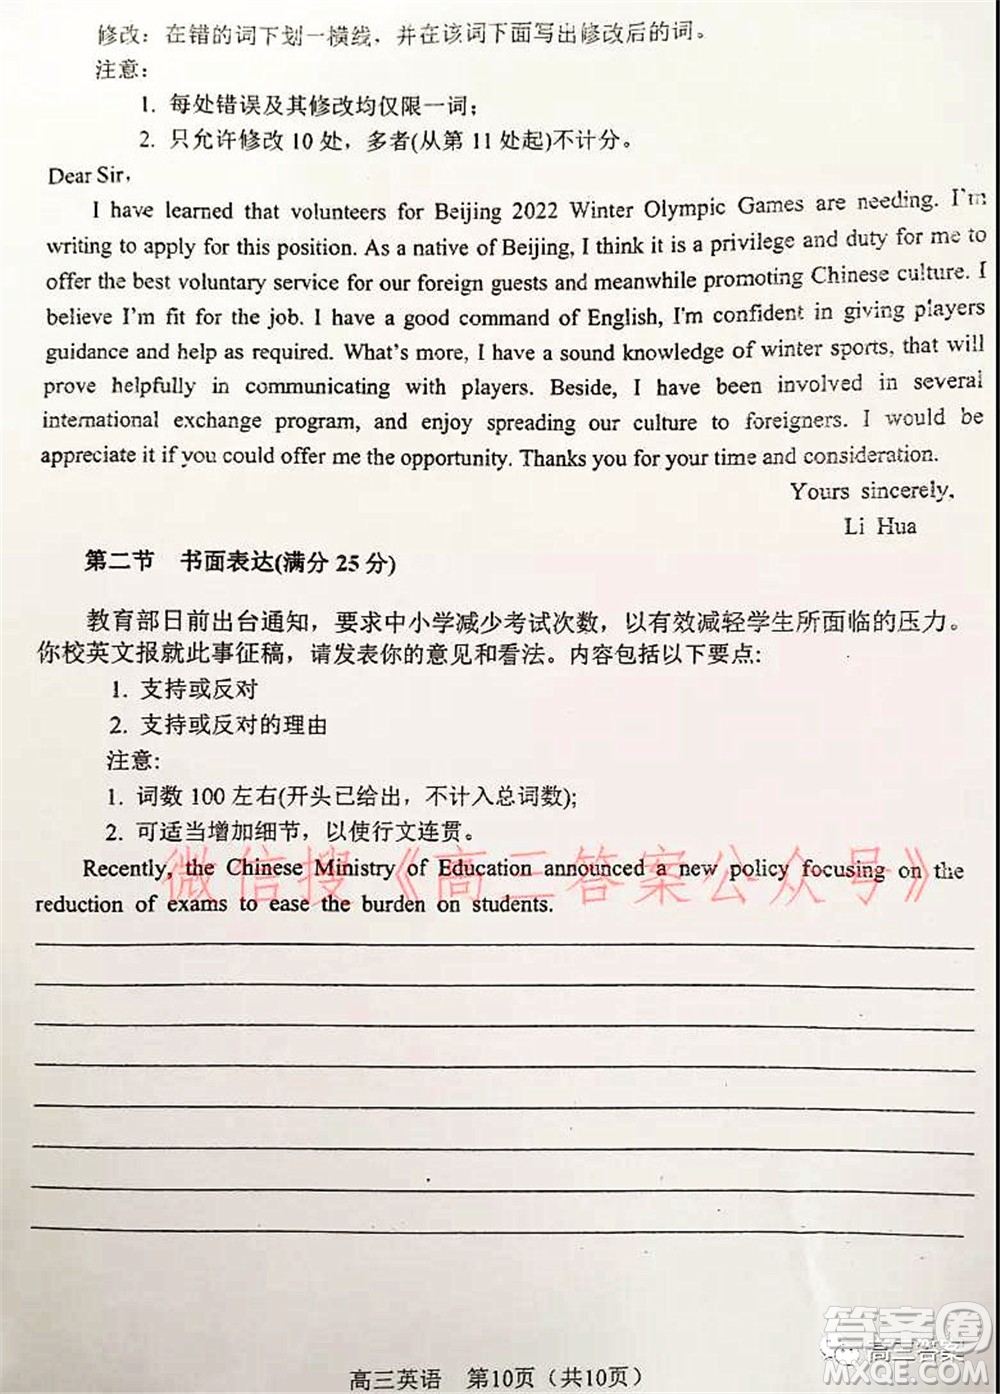 修改：在错的词下划一横线，并在该词下面写出修改后的词。
注意：
1. 每处错误及其修改均仅限一词；
2. 只允许修改 10 处，多者(从第 11 处起)不计分。
Dear Sir,
I have learned that volunteers for Beijing 2022 Winter Olympic Games are needing. I'm
writing to apply for this position. As a native of Beijing, I think it is a privilege and duty for me to
offer the best voluntary service for our foreign guests and meanwhile promoting Chinese culture. I
believe I'm fit for the job. I have a good command of English, I'm confident in giving players
guidance and help as required. What's more, I have a sound knowledge of winter sports, that will
prove helpfully in communicating with players. Beside, I have been involved in several
international exchange program, and enjoy spreading our culture to foreigners. I would be
appreciate it if you could offer me the opportunity. Thanks you for your time and consideration.
Yours sincerely,
Li Hua
第二节 书面表达(满分 25 分)
教育部日前出台通知，要求中小学减少考试次数，以有效减轻学生所面临的压力。
你校英文报就此事征稿，请发表你的意见和看法。内容包括以下要点:
1. 支持或反对
2. 支持或反对的理由
注意:
1. 词数 100 左右(开头已给出，不计入总词数);
2. 可适当增加细节，以使行文连贯。
Recently, the Chinese Ministry of Education announced a new policy focusing on the
reduction of exams to ease the burden on students.
微信搜《高三答案公众号》
高三英语 第10页（共10页）
答案圈
高三答案
MXQE.COM